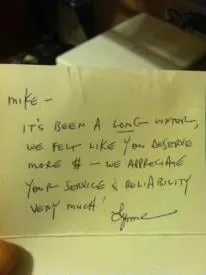 MIKE –
IT'S BEEN A LONG WINTER,
WE FELT LIKE YOU DESERVE
MORE $ – WE APPRECIATE
YOUR SERVICE & RELIABILITY
VERY MUCH!
Lynne